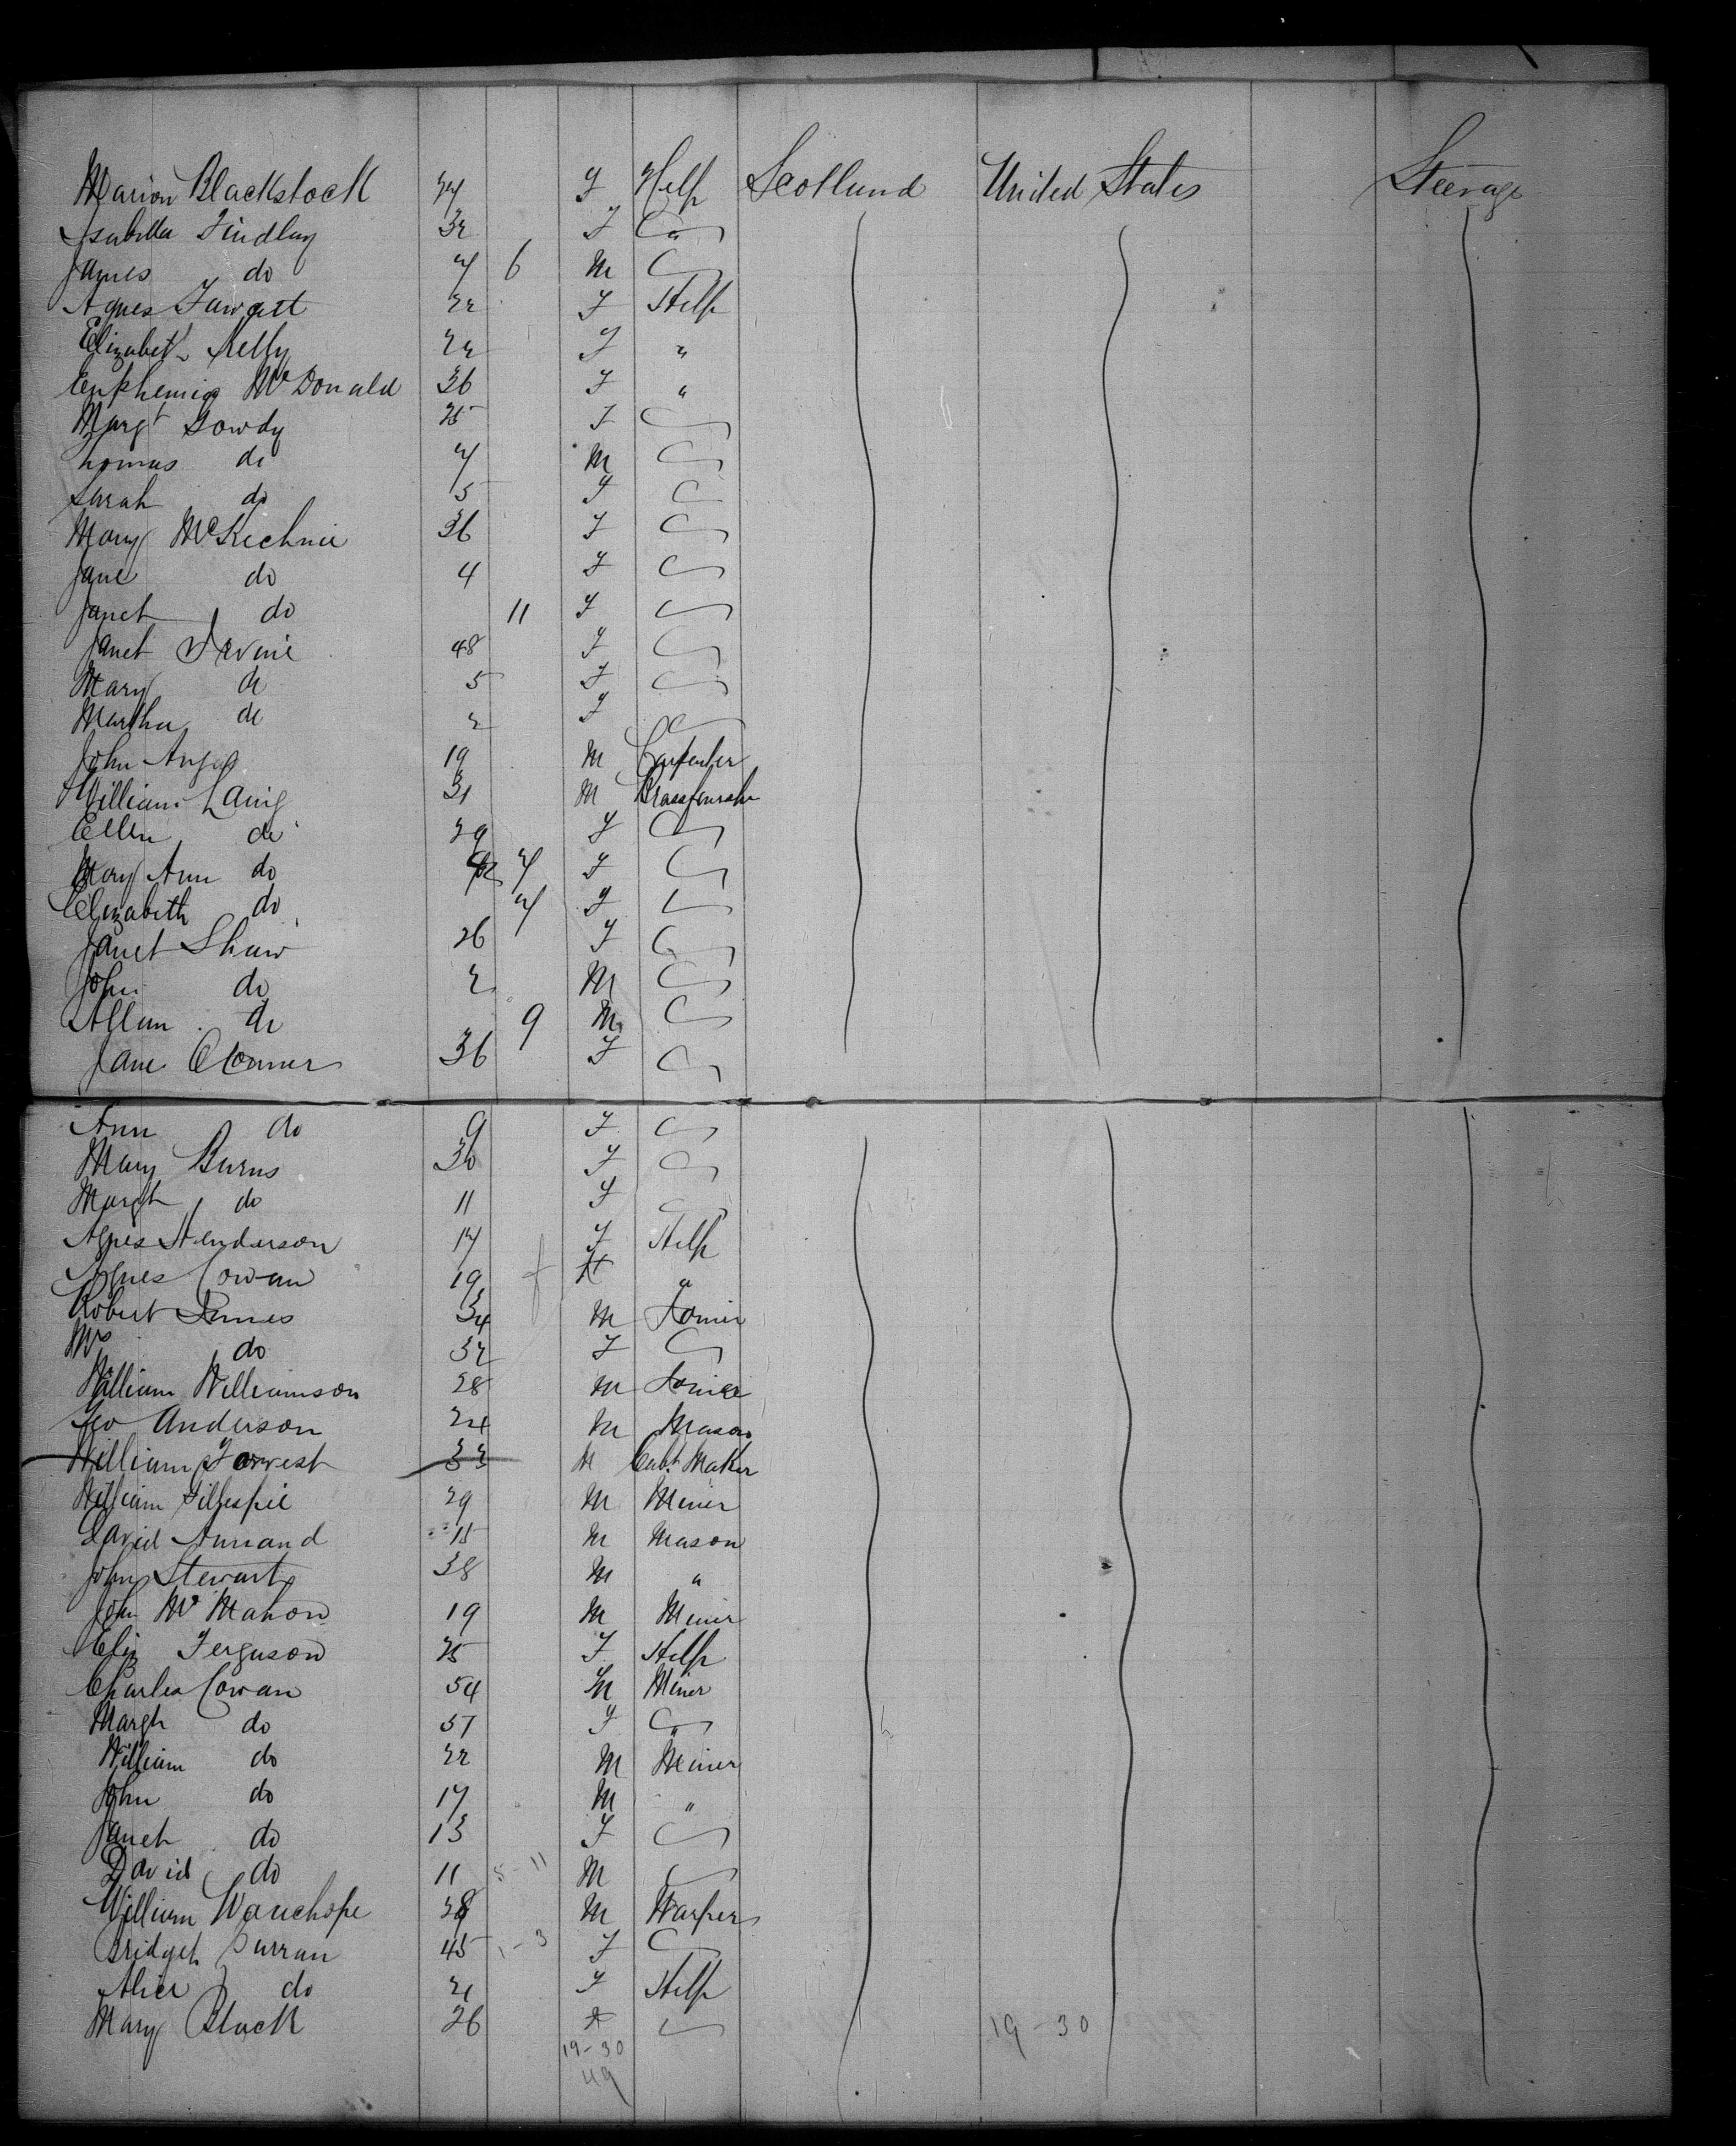 Marion Blackstock 24 F Help Scotland United States Steerage
Isabella Findlay 32 F "
James do 7 6 M
Agnes 22 F Help
Elizabeth Kelly 22 F "
Euphemia McDonald 36 F "
Margt Gowdy 25 F
Thomas do 7 M
Sarah do 5 F
Mary McKechnie 36 F
Jane do 4 F
Janet do 11 F
Janet Irvine 48 F
Mary do 5 F
Martha do 2 F
John Angus 19 M Carpenter
William Laing 31 M Brassfinisher
Ellen do 29 F
Mary Ann do 7 F
Elizabeth do 7 F
Janet Shaw 26 F
John do 2 M
Allan do 9 M
Jane OConner 36 F
Ann do 9 F
Mary Burns 30 F
Margt do 11 F
Agnes Henderson 17 F Help
Agnes Cowan 19 F "
Robert Innes 34 M Joiner
Mrs do 32 F
William Williamson 28 M Joiner
Geo Anderson 24 M Mason
William Forrest 33 M Cabt Maker
William Gillespie 29 M Miner
David Annand M Mason
John Stewart 38 M "
John McMahon 19 M Miner
Eliz Ferguson 25 F Help
Charles Cowan 54 M Miner
Margt do 57 F "
William do 22 M Miner
John do 17 M "
Janet do 13 F
David do 11 5-11 M
William Wauchope 28 M Warper
Bridget Curran 45 1-3 F
Alice do 21 F Help
Mary Black 26 F
19-30 19-30
49